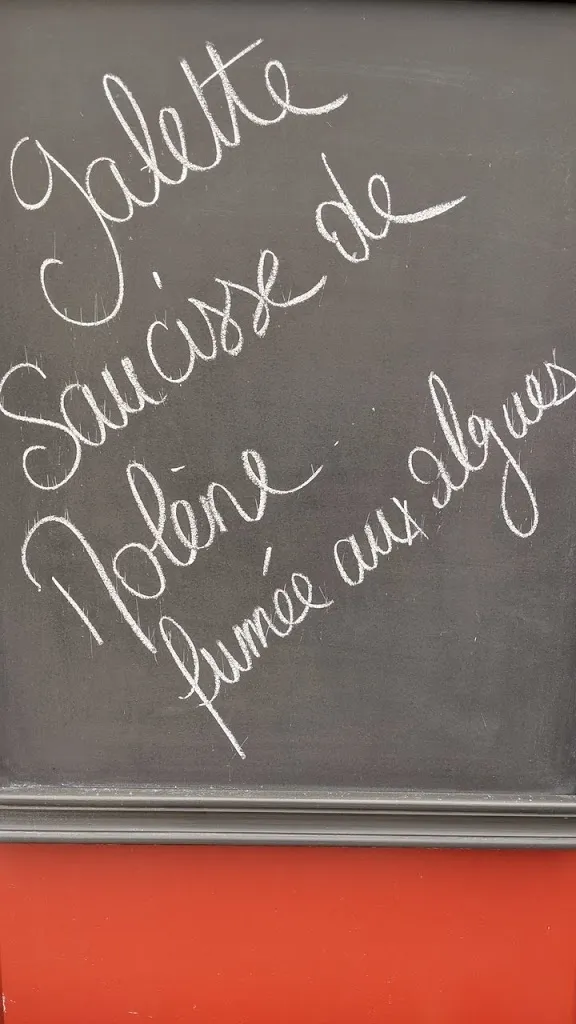 Galette
Saucisse de
Molène
fumée aux algues